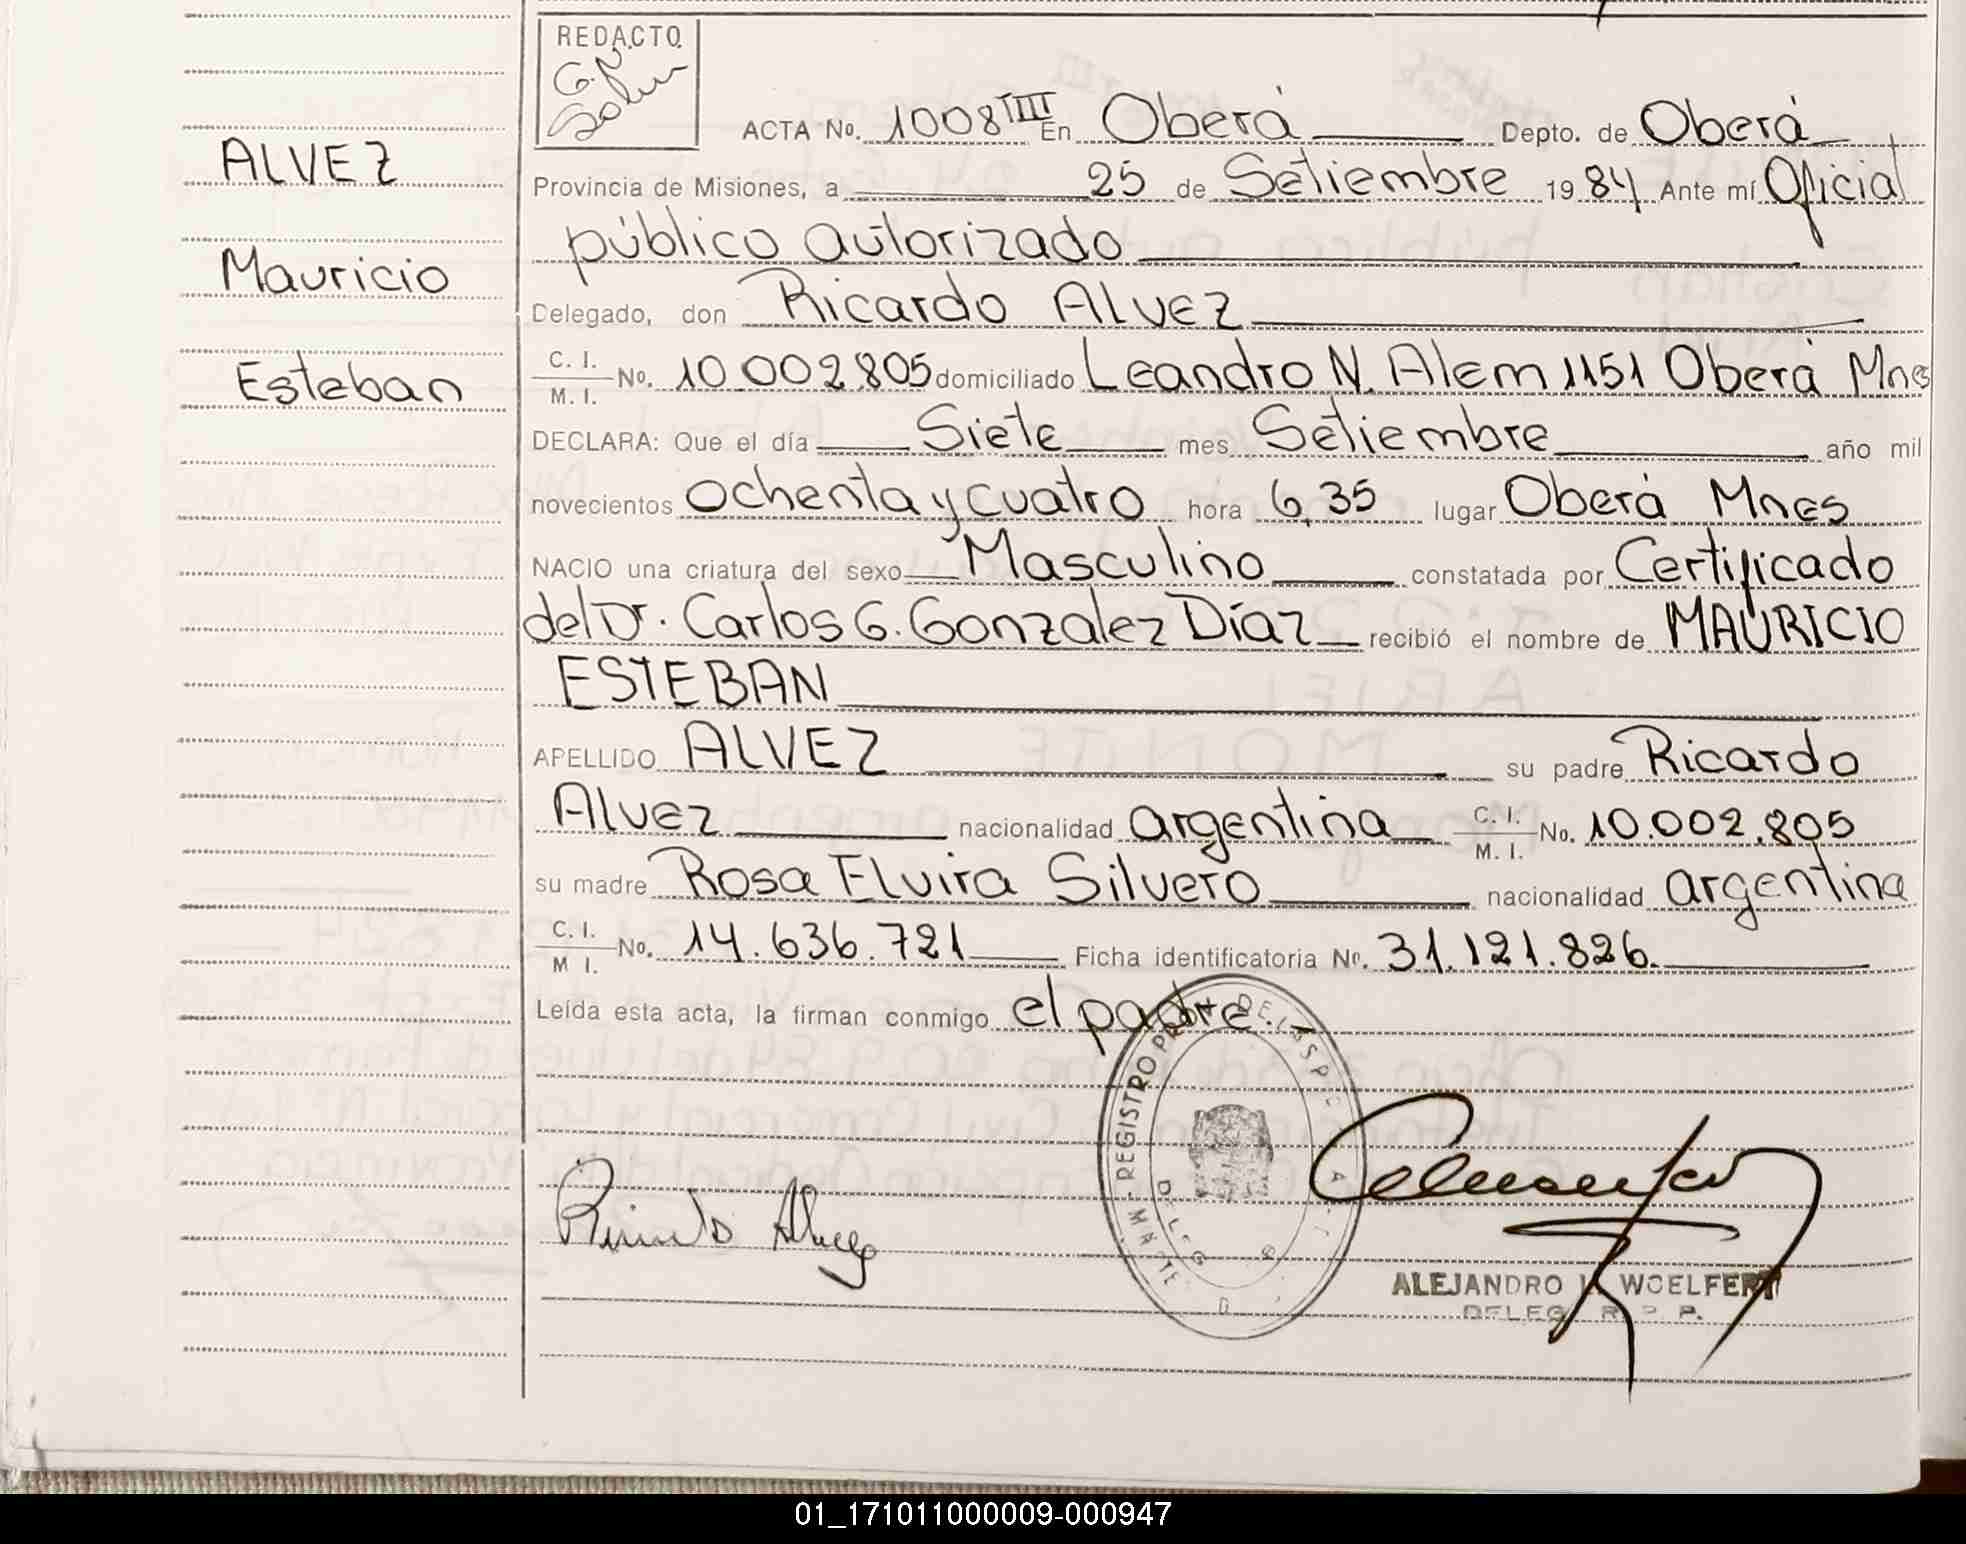 REDACTO
ALVEZ
Mauricio
Esteban
ACTA No. 1008 TIII En Oberá Depto. de Oberá
Provincia de Misiones, a 25 de Setiembre 1984 Ante mí Oficial
público autorizado
Delegado, don Ricardo Alvez
C. I. / M. I. No. 10.002.805 domiciliado Leandro N. Alem 1151 Oberá Mnes
DECLARA: Que el día Siete mes Setiembre año mil
novecientos Ochenta y cuatro hora 6,35 lugar Oberá Mnes
NACIO una criatura del sexo Masculino constatada por Certificado
del Dr. Carlos G. Gonzalez Díaz recibió el nombre de MAURICIO
ESTEBAN
APELLIDO ALVEZ su padre Ricardo
Alvez nacionalidad argentina C. I. / M. I. No. 10.002.805
su madre Rosa Elvira Silvero nacionalidad argentina
C. I. / M I. No. 14.636.721 Ficha identificatoria No. 31.121.826.
Leída esta acta, la firman conmigo el padre.
REGISTRO DE LAS PER
DELEG
Ricardo Alvez
ALEJANDRO WOELFERT
DELEG. R. P. P.
01_171011000009-000947